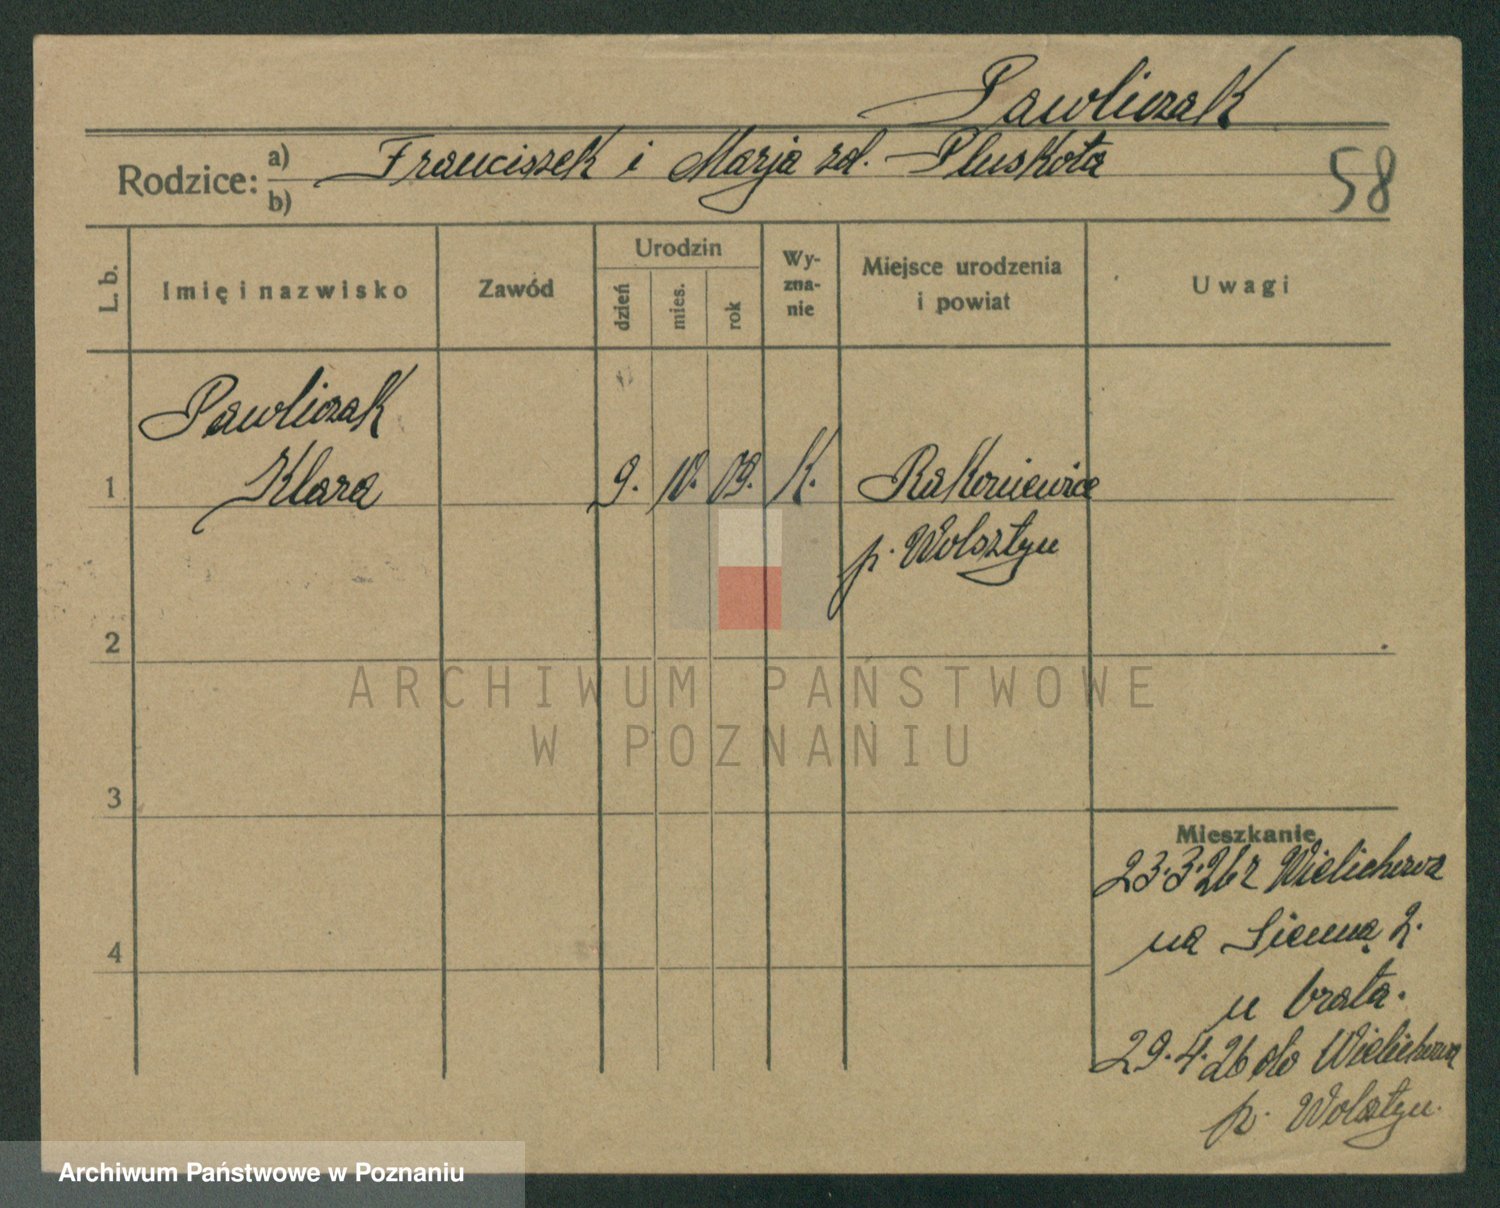 Pawliczak
Rodzice: a) Franciszek i Marja zd. Pluskota
b)
58
L. b.
Imię i nazwisko
Zawód
Urodzin
dzień
mies.
rok
Wy-
zna-
nie
Miejsce urodzenia
i powiat
Uwagi
Pawliczak
1 Klara 9. 10. 09. K. Rakoniewice
p. Wolsztyn
2
ARCHIWUM PAŃSTWOWE
W POZNANIU
3
Mieszkanie
23.3.26 z Wielichowa
na Sienną 2.
4
u brata.
29.4.26 do Wielichowa
p. Wolsztyn.
Archiwum Państwowe w Poznaniu